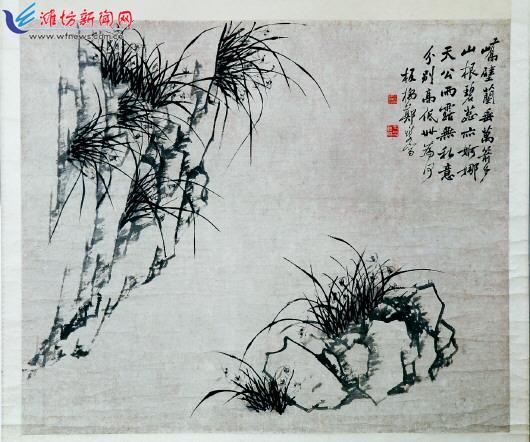 潍坊新闻网
www.wfnews.com.cn
峭壁蘭垂萬箭多
山根碧蕊亦婀娜
天公雨露無私意
分別高低世為何
板橋鄭燮